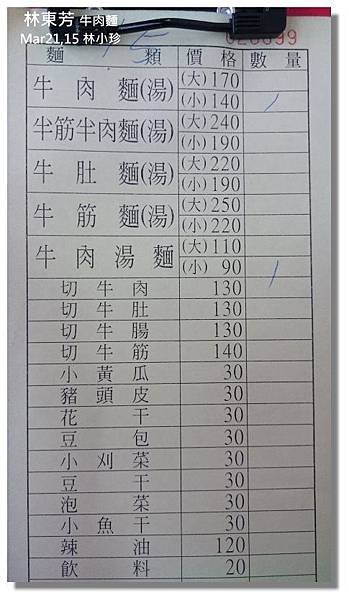 林東芳 牛肉麵
Mar21,15 林小珍
麵 類 價 格 數 量
牛 肉 麵(湯) (大)170
(小)140 /
半筋半肉麵(湯) (大)240
(小)190
牛 肚 麵(湯) (大)220
(小)190
牛 筋 麵(湯) (大)250
(小)220
牛 肉 湯 麵 (大)110
(小) 90 /
切 牛 肉 130
切 牛 肚 130
切 牛 腸 130
切 牛 筋 140
小 黃 瓜 30
豬 頭 皮 30
花 干 30
豆 包 30
小 刈 菜 30
豆 干 30
泡 菜 30
小 魚 干 30
辣 油 120
飲 料 20